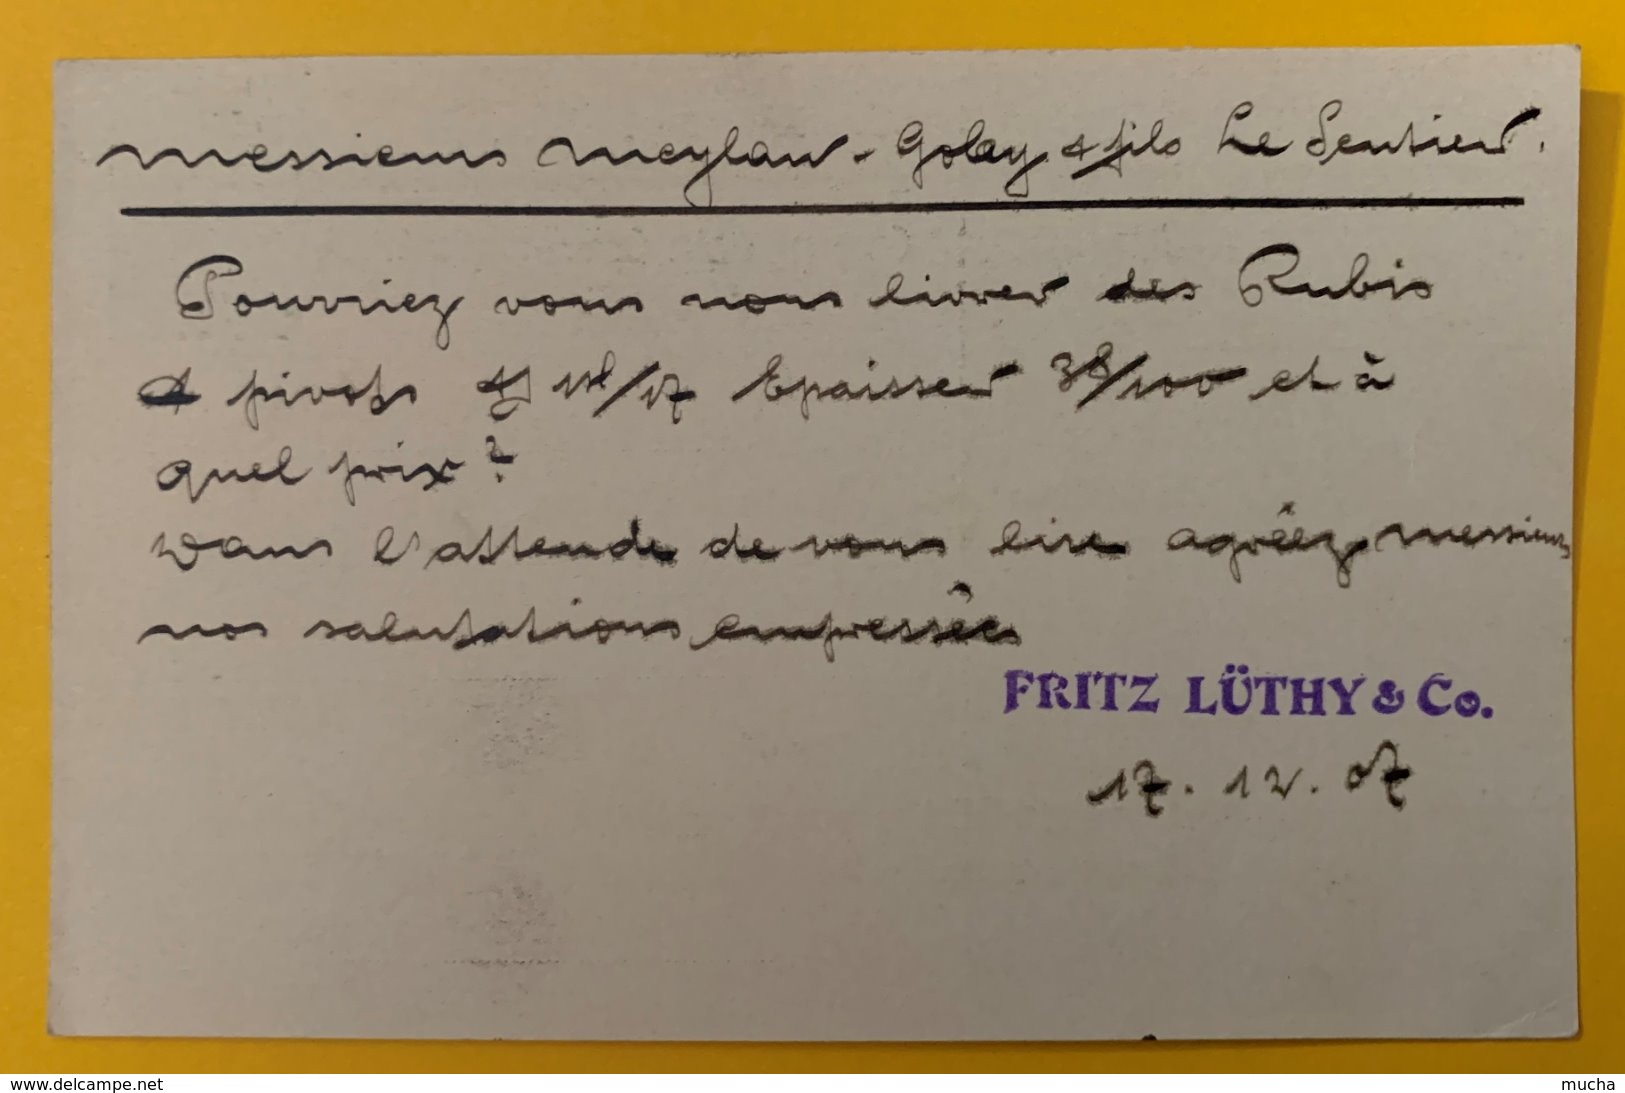 Messieurs Meylan - Golay & fils Le Sentier.
Pouvriez vous nous livrer des Rubis
pivots /17 Epaisseur /100 et à
quel prix?
Dans l'attende de vous lire agréez messieurs
nos salutations empressées
FRITZ LÜTHY & Co.
17. 12. 07
www.delcampe.net
mucha